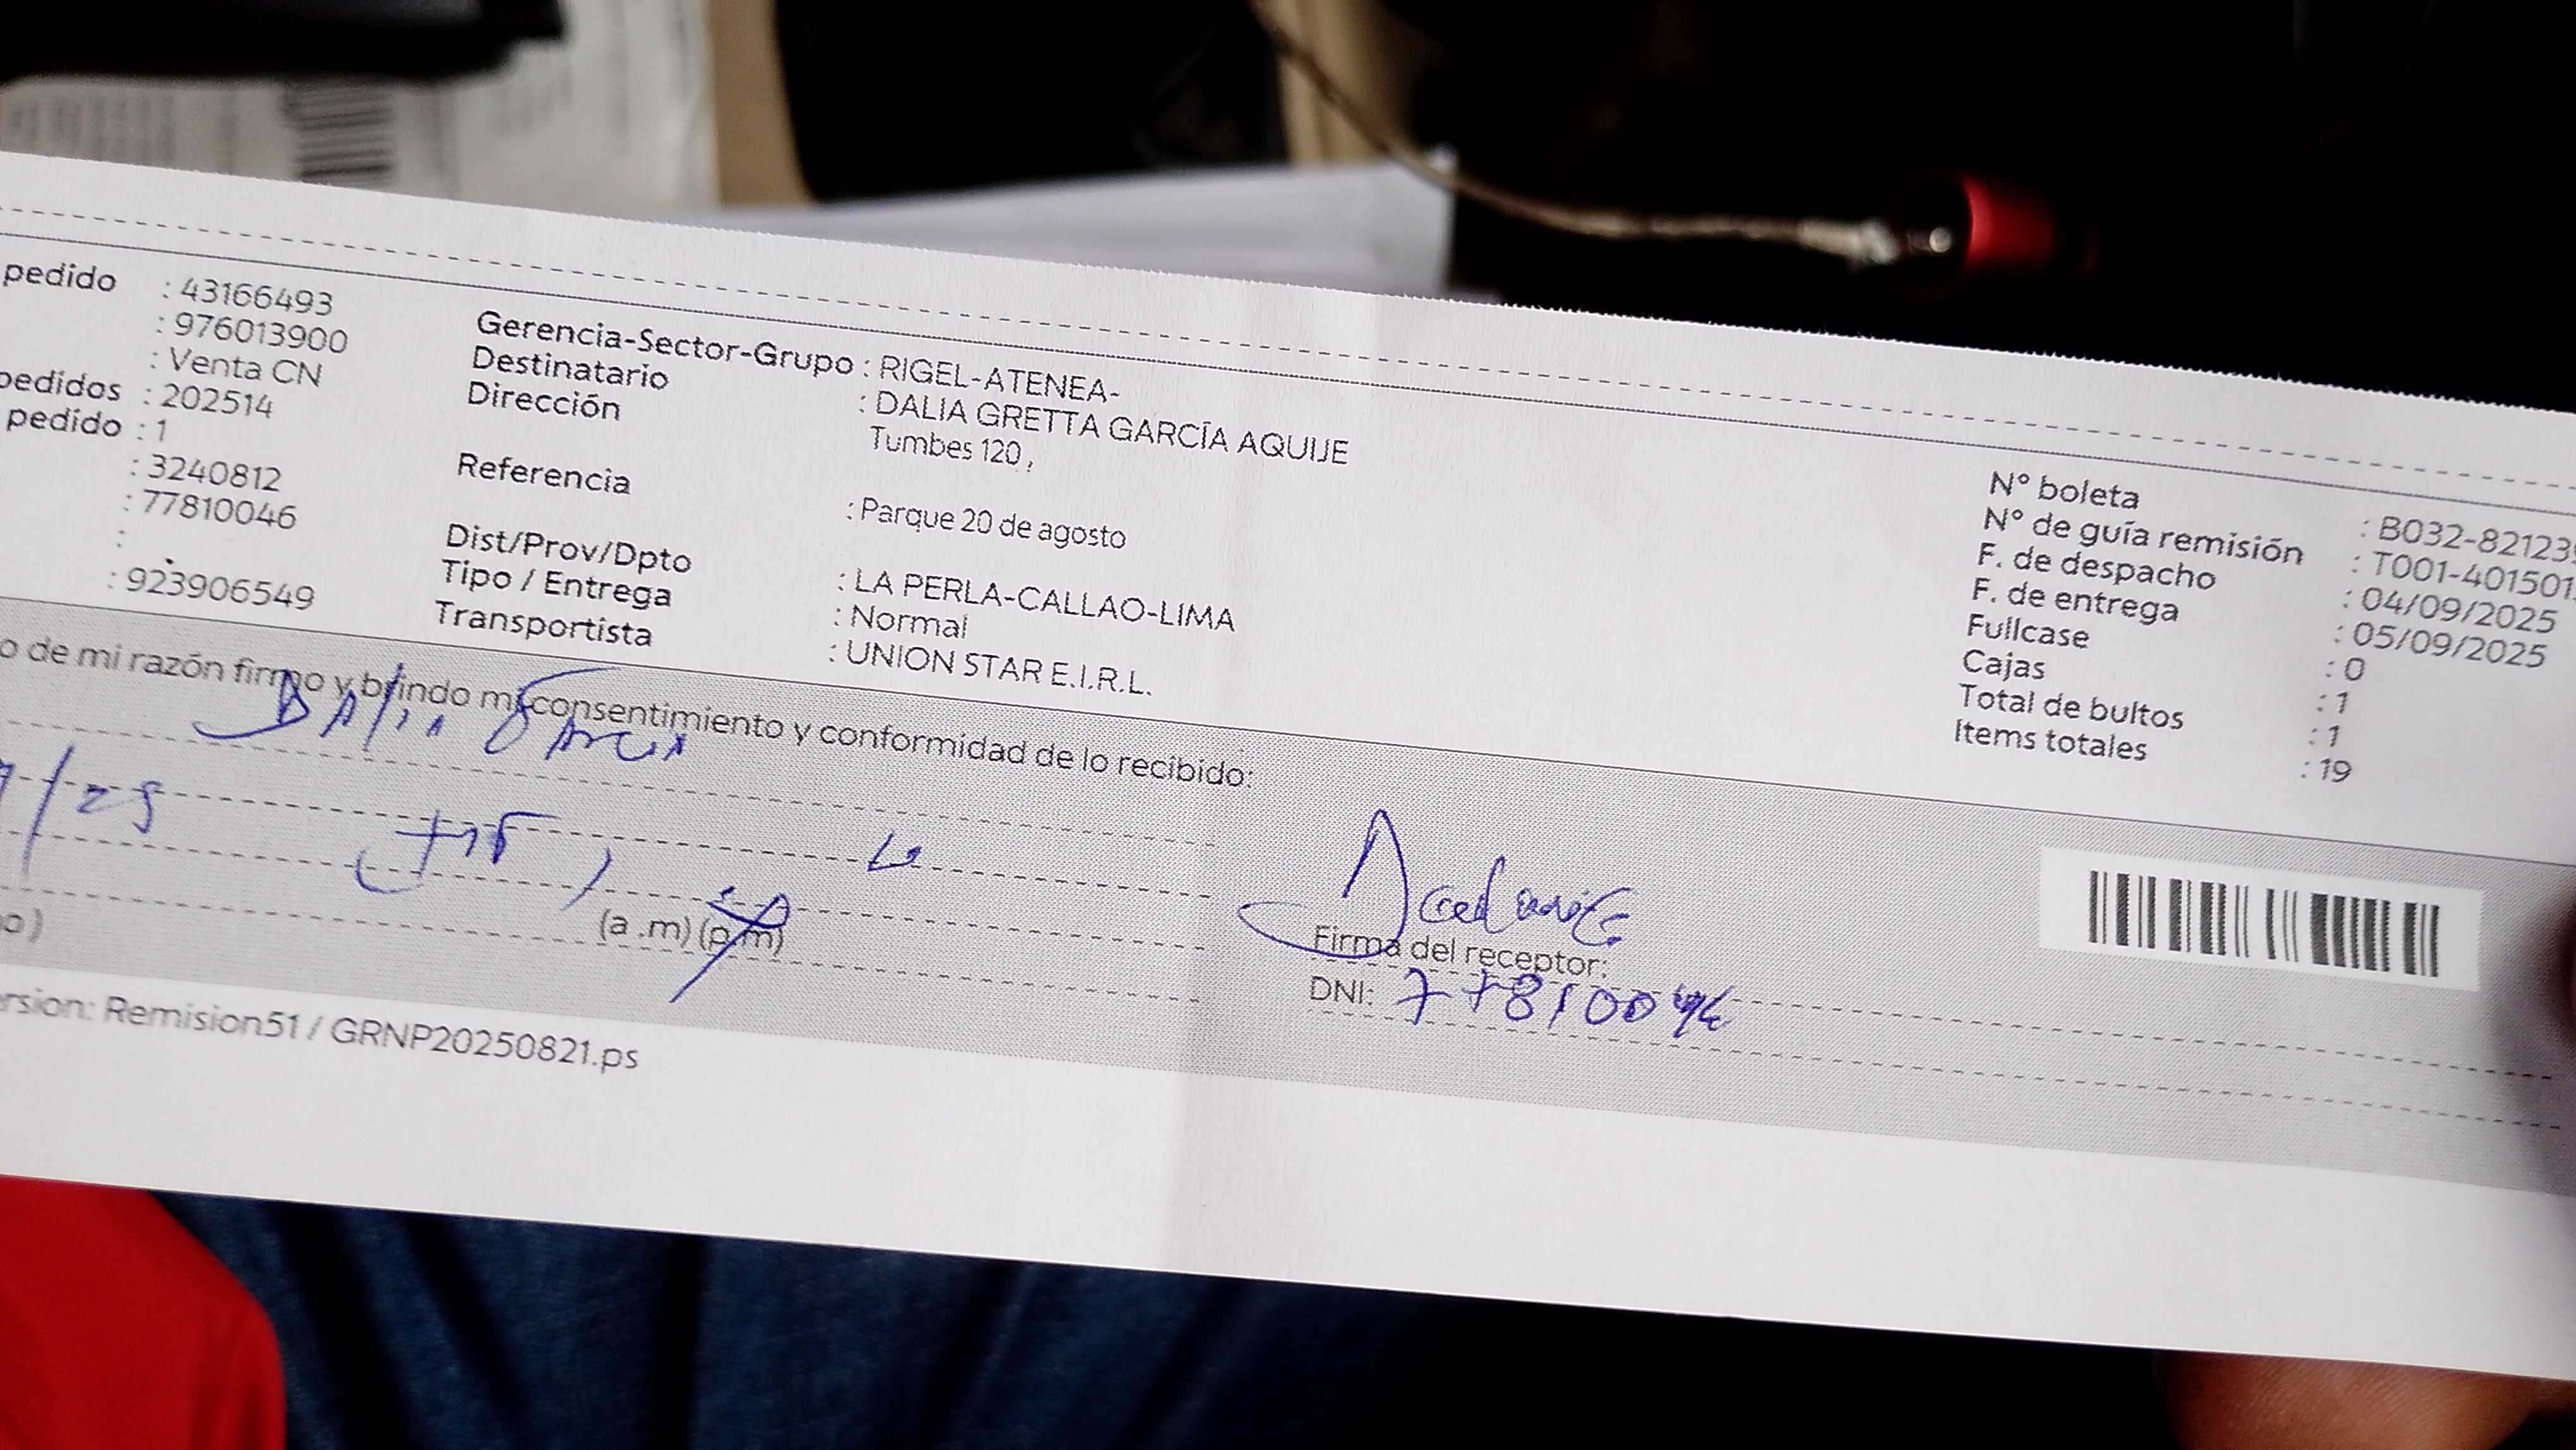 pedido : 43166493
: 976013900
: Venta CN
pedidos : 202514
pedido : 1
: 3240812
: 77810046
:
: 923906549
Gerencia-Sector-Grupo : RIGEL-ATENEA-
Destinatario : DALIA GRETTA GARCÍA AQUIJE
Dirección Tumbes 120 ,
Referencia : Parque 20 de agosto
Dist/Prov/Dpto : LA PERLA-CALLAO-LIMA
Tipo / Entrega : Normal
Transportista : UNION STAR E.I.R.L.
N° boleta : B032-82123
N° de guía remisión : T001-401501
F. de despacho : 04/09/2025
F. de entrega : 05/09/2025
Fullcase : 0
Cajas : 1
Total de bultos : 1
Items totales : 19
o de mi razón firmo y brindo mi consentimiento y conformidad de lo recibido:
DAlia GArcia
/25
(a .m) (p.m)
Firma del receptor:
DNI: 77810046
rsion: Remision51 / GRNP20250821.ps